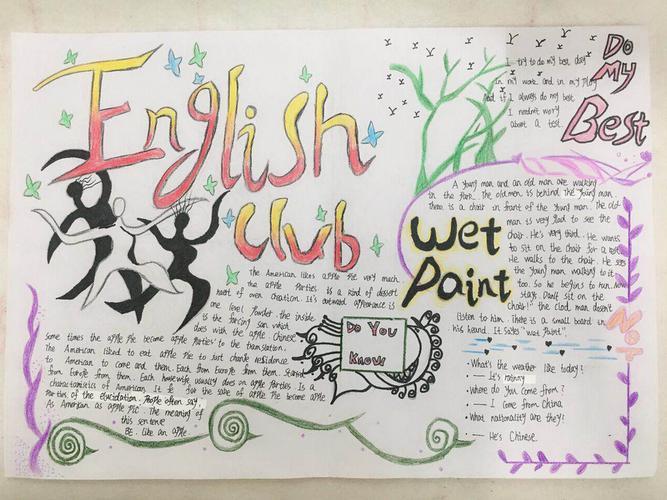 English
club
Do
My
Best
I try to do my best day
In my work and in my play
And if I always do my best
I needn't worry
about a test.
Wet
Paint
A young man and an old man are walking
in the park. The old men is behind the young man.
there is a chair in front of the young man. The old
man is very glad to see the
chair. He's very third. He wants
to sit on the chair for a
He walks to the chair. He sees
the young man walking to it
too. So he begins to run. how
stay. Don't sit on the
chair!" the clod man doesn't
listen to him. There is a small board in
his heard. It says "wet paint".
Not
• What's the weather like today?
— It's rainny
• Where do you come from?
— I come from China
• What nationality are they?
— He's Chinese.
Do You
Know
The American likes apple pie very much.
the apple Parties is a kind of dessert
heart of oven creation. It's outward appearance is
one level powder. the inside
is the farcing san which
does with the apple Chinese
some times the apple pie become apple parties' to the translation.
The American liked to eat apple pie to just change residence
to American to come and them. Each from Europe from them. Started
from Europe from them. Each housewife usually does an apple Parties. Is a
characteristics of American. It is for the sake of apple pie become apple
Parties of the elucidation. People often say
As American as apple pie. The meaning of
this sentence
BE. like an apple.